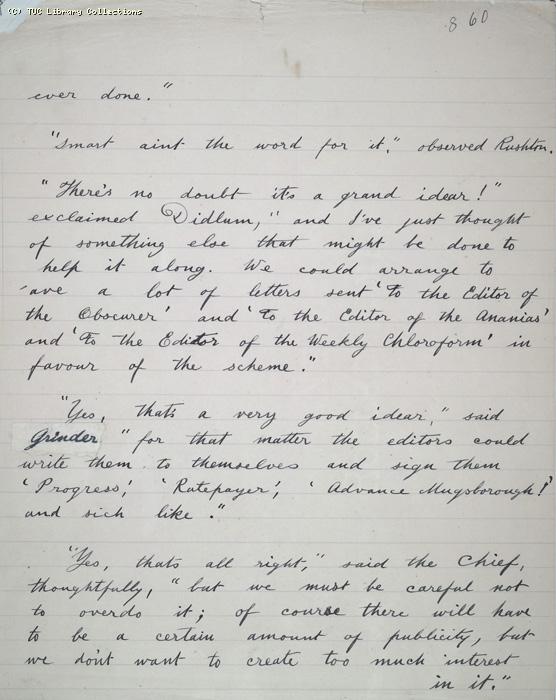 (C) TUC Library Collections
860
ever done."
"Smart aint the word for it," observed Rushton.
"There's no doubt it's a grand idear!"
exclaimed Didlum, "and I've just thought
of something else that might be done to
help it along. We could arrange to
'ave a lot of letters sent 'to the Editor of
the Obscurer' and 'to the Editor of the Ananias'
and 'to the Editor of the Weekly Chloroform' in
favour of the scheme."
"Yes, thats a very good idear," said
Grinder "for that matter the editors could
write them to themselves and sign them
'Progress', 'Ratepayer', 'Advance Mugsborough!'
and sich like."
"Yes, thats all right," said the Chief,
thoughtfully, "but we must be careful not
to overdo it; of course there will have
to be a certain amount of publicity, but
we dont want to create too much interest
in it."